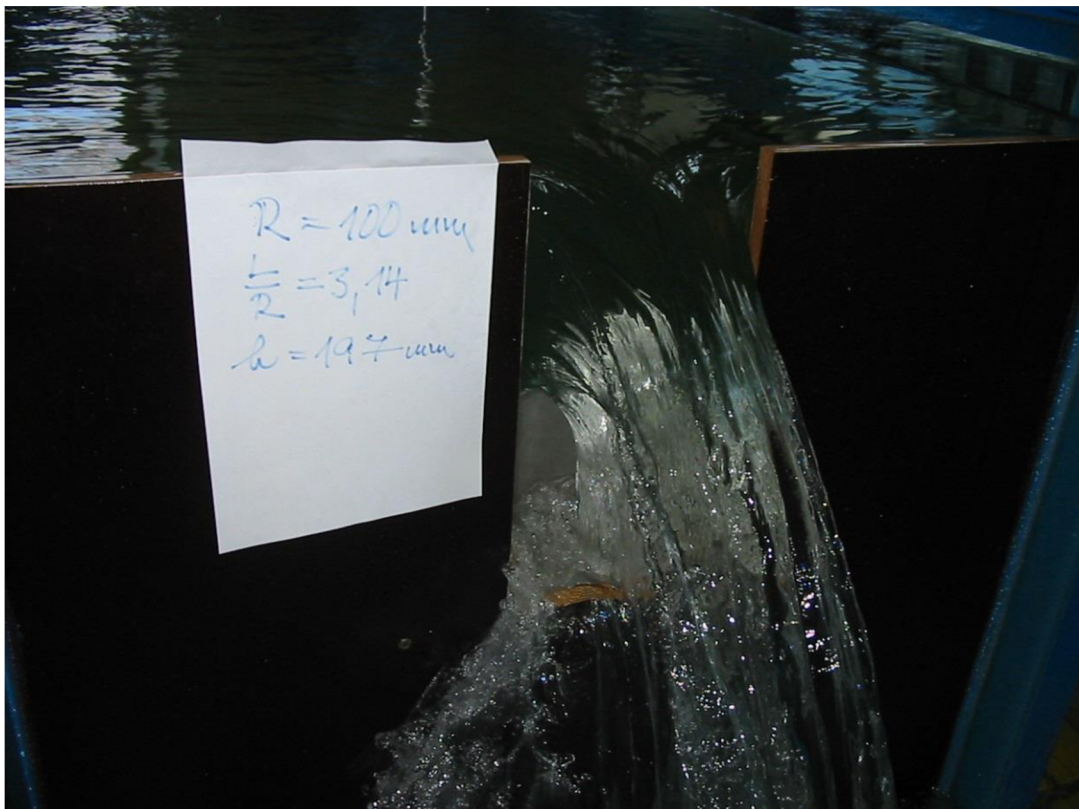 R = 100 mm
L/R = 3,14
h = 197 mm